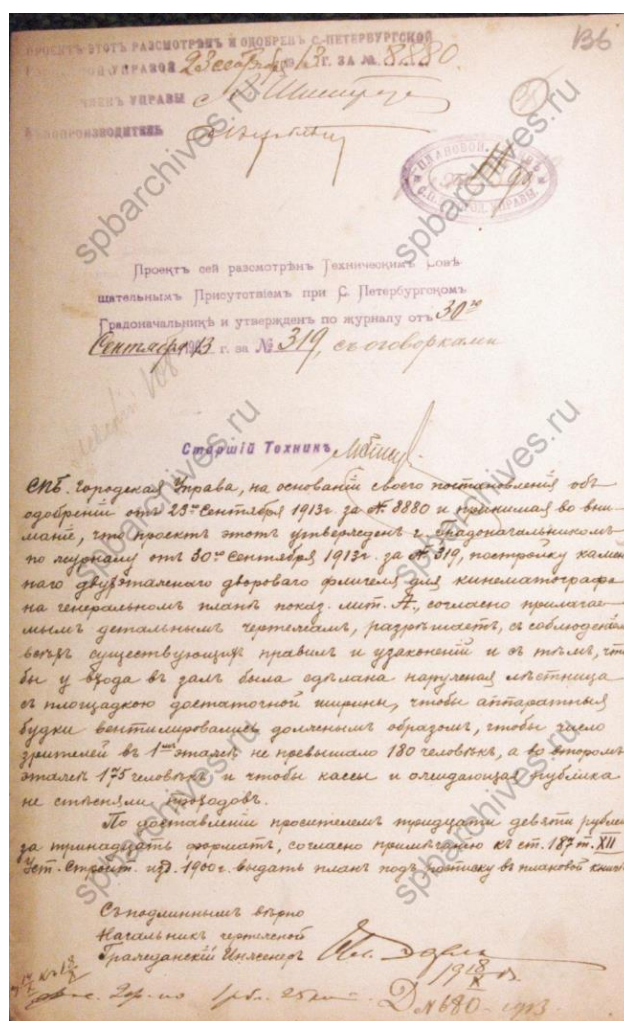 ПРОЕКТЪ ЭТОТЪ РАЗСМОТРѢНЪ И ОДОБРЕНЪ С.-ПЕТЕРБУРГСКОЙ
136
УПРАВОЙ 23 сентября 1913 Г. ЗА № 8880.
ЧЛЕНЪ УПРАВЫ
ДѢЛОПРОИЗВОДИТЕЛЬ
Проектъ сей разсмотрѣнъ Техническимъ Совѣ-
щательнымъ Присутствіемъ при С. Петербургскомъ
Градоначальникѣ и утвержденъ по журналу отъ 30го
Сентября 1913 г. за № 319, съ оговорками
Старшій Техникъ
СПБ. Городская Управа, на основаніи своего постановленія объ
одобреніи отъ 23го Сентября 1913г. за № 8880 и принимая во вни-
маніе, что проектъ этотъ утвержденъ г. Градоначальникомъ
по журналу отъ 30го Сентября 1913г. за № 319, постройку камен
наго двухэтажнаго двороваго флигеля для кинематографа
на генеральномъ планѣ показ. лит. А., согласно прилагае-
мымъ детальнымъ чертежамъ, разрѣшаетъ, съ соблюденіемъ
всѣхъ существующихъ правилъ и узаконеній и съ тѣмъ, что
бы у входа въ залъ была сдѣлана наружная лѣстница
съ площадкою достаточной ширины, чтобы аппаратныя
будки вентилировались должнымъ образомъ, чтобы число
зрителей въ 1мъ этажѣ не превышало 180 человѣкъ, а во второмъ
этажѣ 175 человѣкъ и чтобы кассы и ожидающая публика
не стѣсняли проходовъ.
По доставленіи просителемъ тридцати девяти рублей
за тринадцать форматъ, согласно примѣчанію къ ст. 187 т. XII
Уст. Строит. изд. 1900г. выдать планъ подъ росписку въ плановой книгѣ
Съ подлиннымъ вѣрно
Начальникъ чертежной
Гражданскій Инженеръ
19 18/X 13
2 эр. по 1 рбл. 25 коп.
Д № 680 - 1913
spbarchives.ru
spbarchives.ru
spbarchives.ru
spbarchives.ru
spbarchives.ru
spbarchives.ru
spbarchives.ru
spbarchives.ru